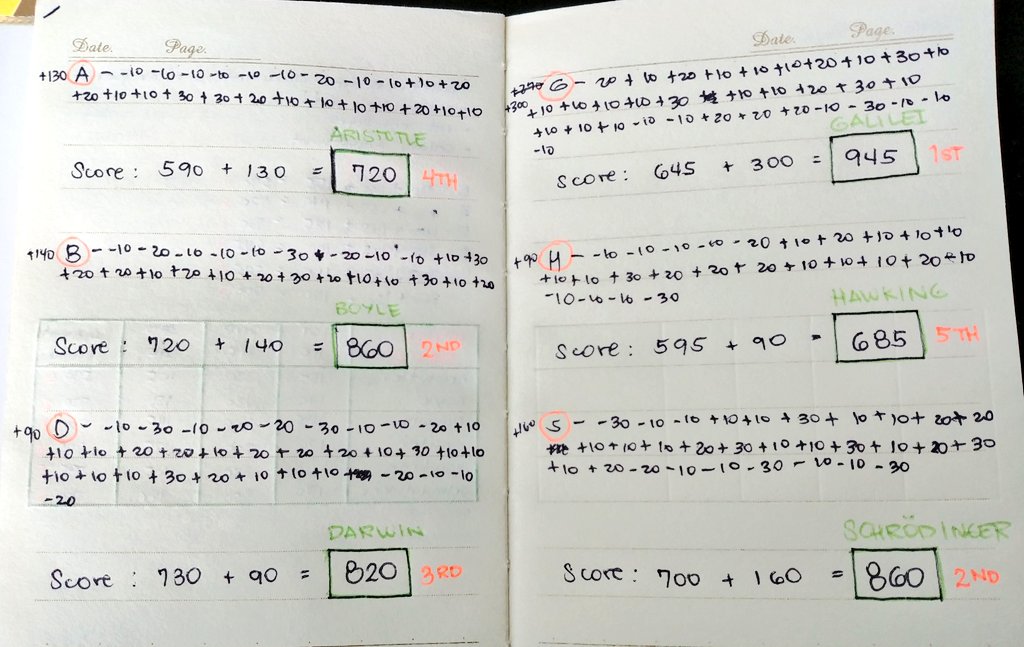 Date. Page.
+130 A - -10 -10 -10 -10 -10 -10 -20 -10 -10 +10 +20
+20 +10 +10 +30 +30 +20 +10 +10 +10 +10 +20 +10 +10
ARISTOTLE
Score: 590 + 130 = 720 4TH
+140 B - -10 -20 -10 -10 -10 -30 -20 -10 -10 +10 +30
+20 +20 +10 +20 +10 +20 +30 +20 +10 +10 +30 +10 +20
BOYLE
Score : 720 + 140 = 860 2ND
+90 D - -10 -30 -10 -20 -20 -30 -10 -10 -20 +10
+10 +10 +20 +20 +10 +20 +20 +20 +10 +30 +10 +10
+10 +10 +10 +30 +20 +10 +10 +10 -20 -10 -10
-20
DARWIN
Score : 730 + 90 = 820 3RD
Date. Page.
+270 G - 20 + 10 +20 +10 +10 +10 +20 +10 +30 +10
+300 +10 +10 +10 +10 +30 +10 +10 +20 +30 +10
+10 +10 +10 -10 -10 +20 +20 +20 -10 -30 -10 -10
-10
GALILEI
Score: 645 + 300 = 945 1ST
+90 H - -10 -10 -10 -10 -20 +10 +20 +10 +10 +10
+10 +10 +30 +20 +20 + 20 +10 +10 +10 +20 -10
-10 -10 -10 -30
HAWKING
Score: 595 + 90 = 685 5TH
+160 S - -30 -10 -10 +10 +10 +30 + 10 +10 + 20 + 20
+10 +10 +10 +20 +30 +10 +10 +30 +10 +20 +30
+10 +20 -20 -10 -10 -30 -10 -10 -30
SCHRÖDINGER
Score: 700 + 160 = 860 2ND